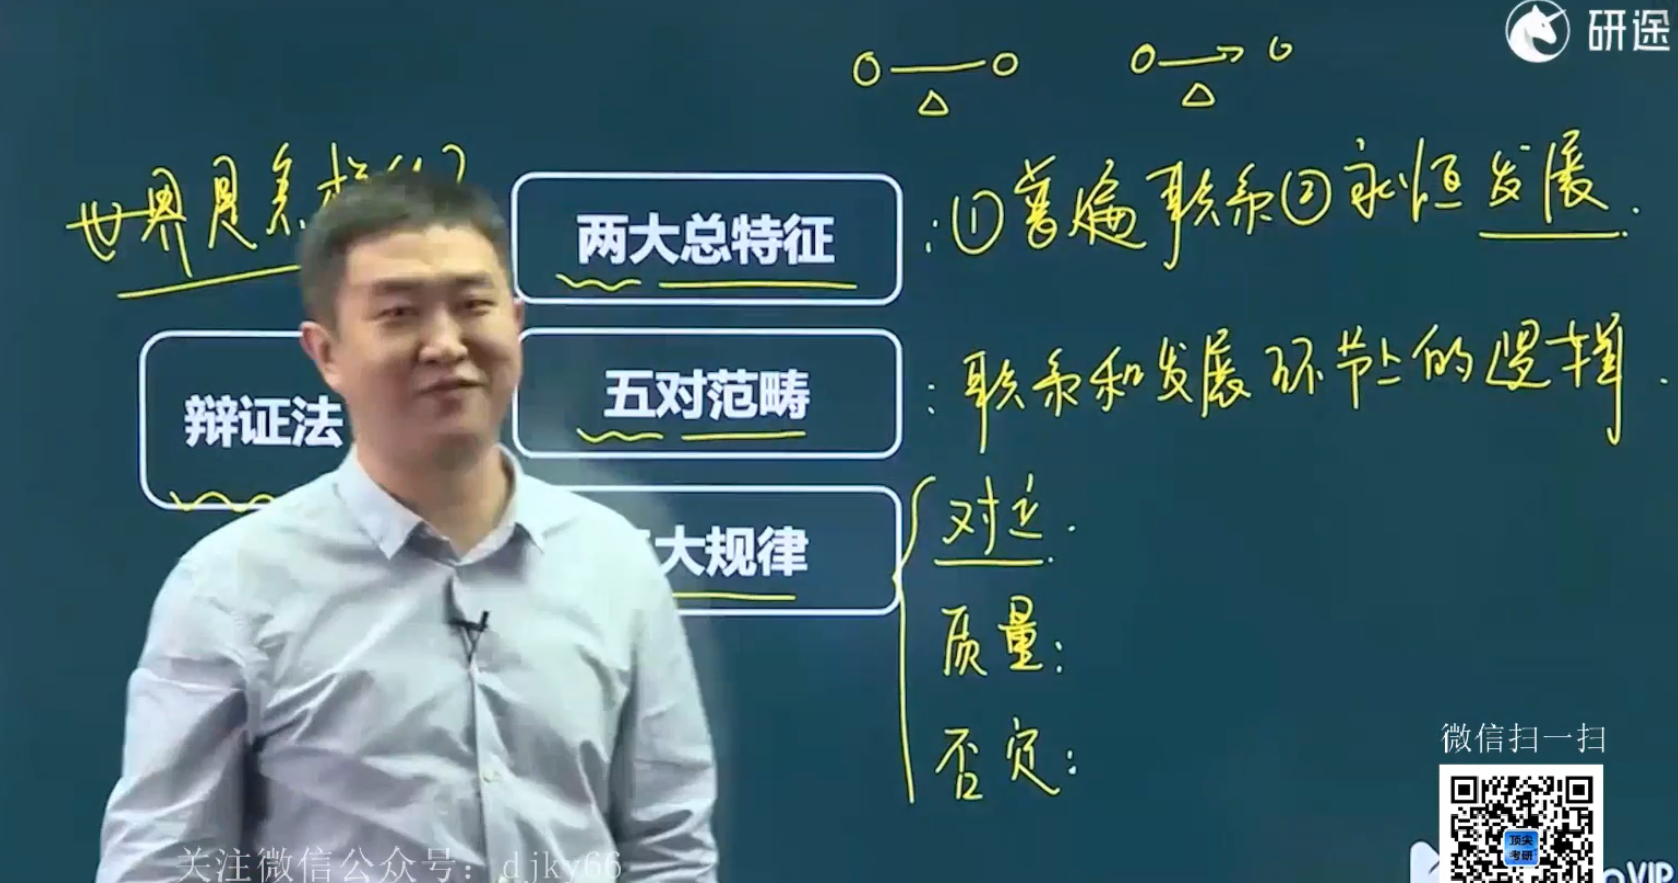 研途
世界是怎样的?
两大总特征
:①普遍联系②永恒发展.
辩证法
五对范畴
:联系和发展环节上的逻辑.
大规律
对立.
质量:
否定:
微信扫一扫
顶尖
考研
关注微信公众号：djky66
VIP